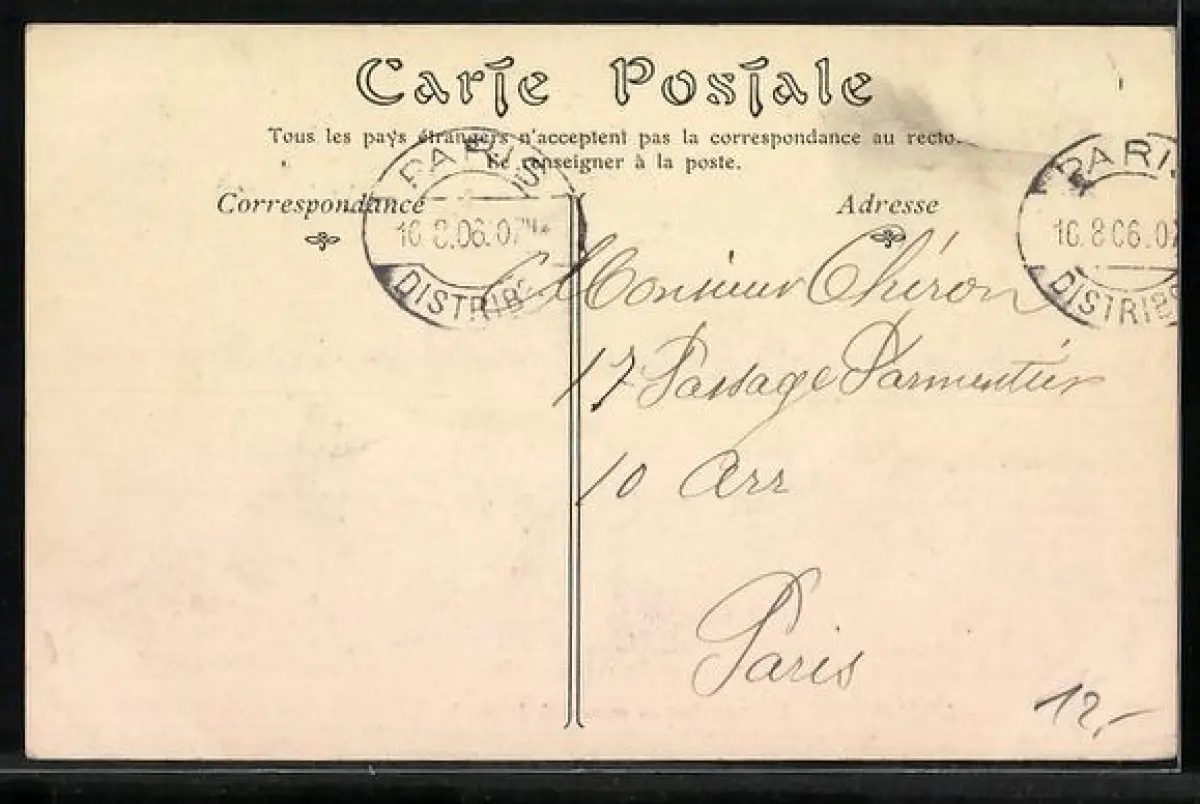 Carte Postale
Tous les pays étrangers n'acceptent pas la correspondance au recto.
Se renseigner à la poste.
Correspondance
Adresse
PARIS
10 8 06. 07
DISTRIB
PARIS
10 8 06. 07
DISTRIB
Monsieur Chéron
17 Passage Parmentier
10 Arr
Paris
12,-